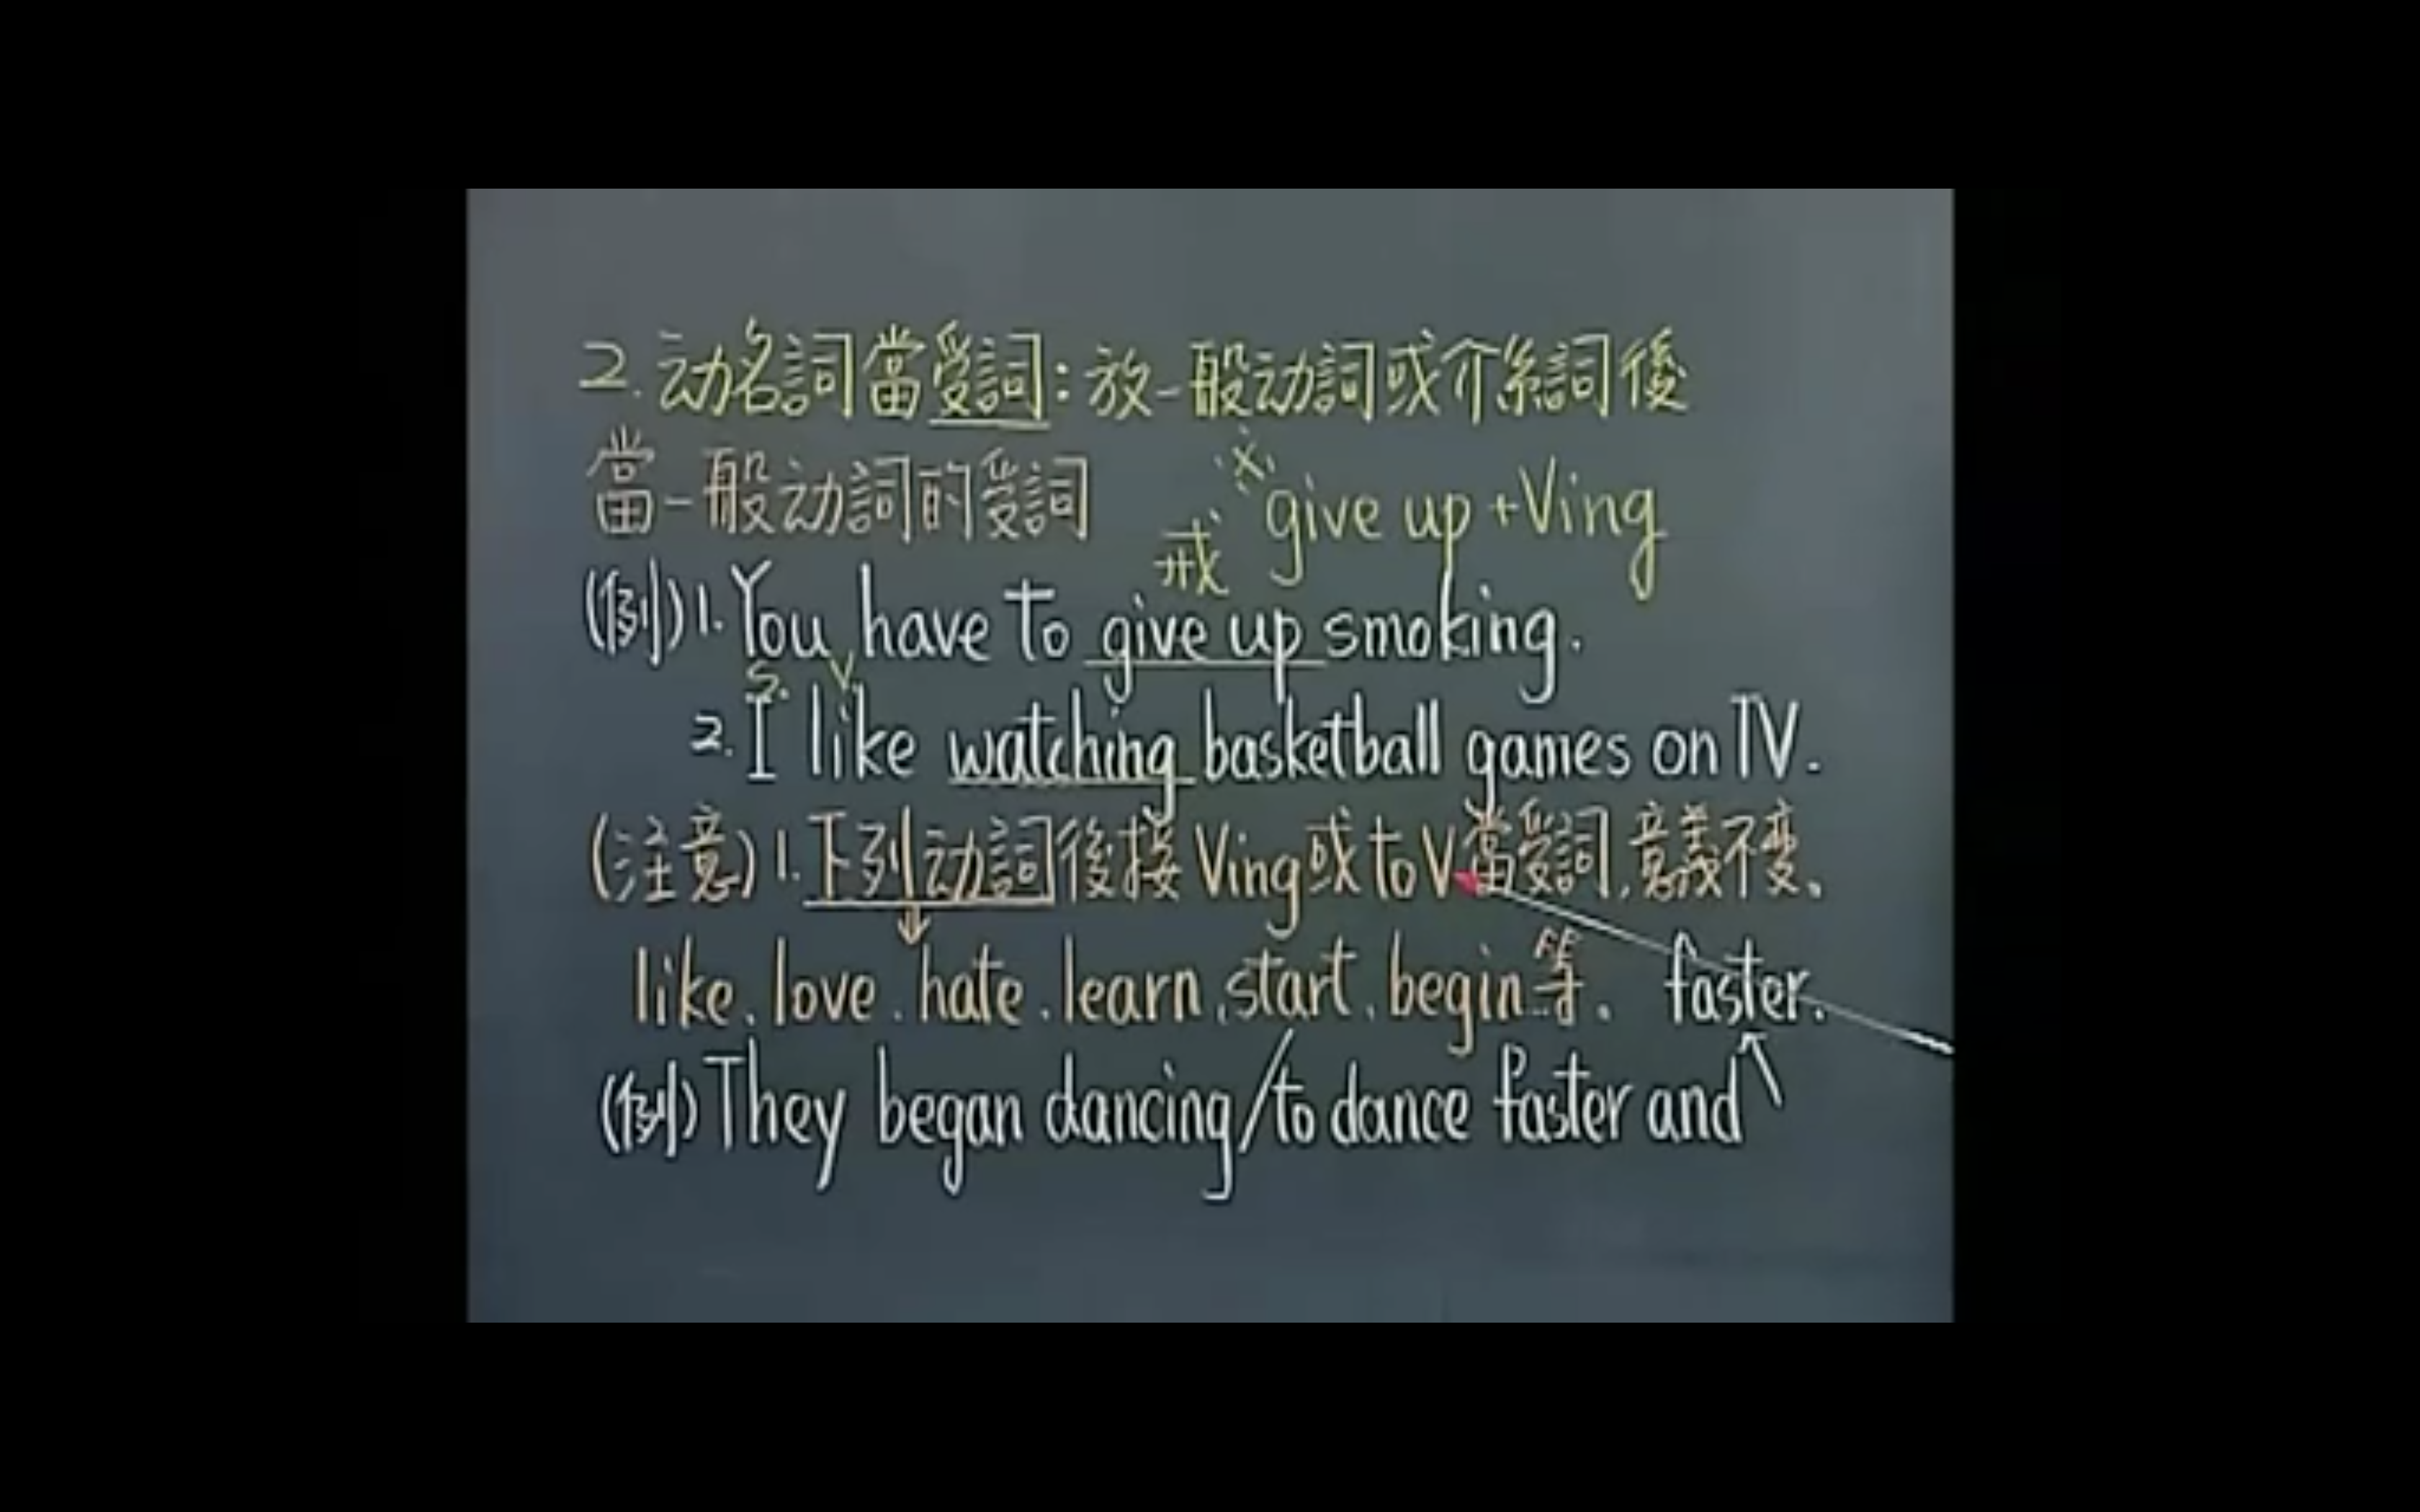 2. 动名詞當受詞：放一般动詞或介系詞後
當一般动詞的受詞 ※ give up + Ving
戒
(例) 1. You have to give up smoking.
S. V
2. I like watching basketball games on TV.
(注意) 1. 下列动詞後接 Ving 或 to V 當受詞，意義不变。
↓
like、love、hate、learn、start、begin…等。 faster.
(例) They began dancing / to dance faster and